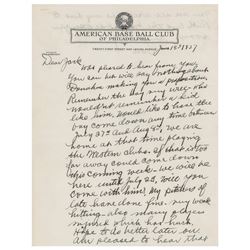 AMERICAN BASE BALL CLUB
OF PHILADELPHIA
TWENTY-FIRST STREET AND LEHIGH AVENUE
June 15th 1927
Dear Jack
Was pleased to hear from you.
You can bet will say nothing about
making you a proposition.
Remember the day my
wouldn't remember a
like him, would like to have the
boy come down any time between
July 27th and Aug 5th, we are
home at that time playing
the Western clubs. If that is too
far away could come down
this coming week. We will be
here until July 23, will you
come with him. My pitchers of
late have done fine, my weak
hitting, also many players
injured which has hurt.
Hope to do better later on
am pleased to hear that